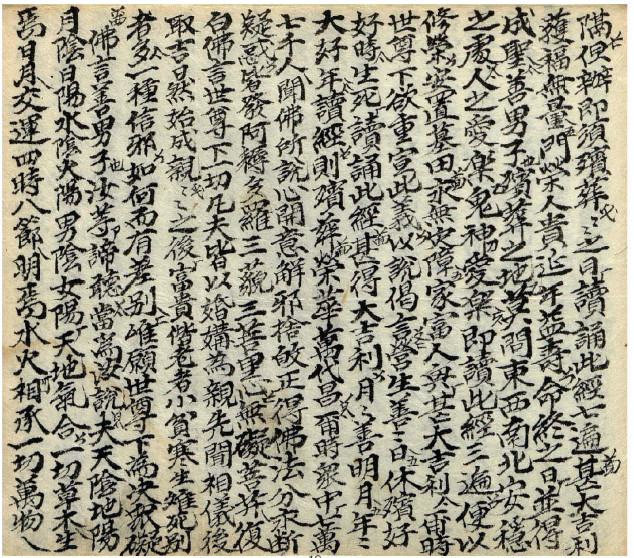 隅但辦即須殯葬〻之日讀誦此經七遍甚大吉利
獲福無量門榮人貴延年益壽命終之日並得
成聖善男子殯葬之地莫問東西南北安穩
之處人之愛樂鬼神愛樂即讀此經三遍便以
修營安置墓田永無災障家富人興甚大吉利爾時
世尊下欲重宣此義以說偈言營生善〻日休殯好
好時生死讀誦此經甚得大吉利月〻善明月年〻
大好年讀經則殯葬榮華萬代昌爾時衆中七萬
七千人聞佛所說心開意解邪捨皈正得佛法分永斷
疑惑皆發阿耨多羅三藐三菩提心無礙菩薩復
白佛言世尊下一切凡夫皆以婚媾為親先問相儀後
取吉日然始成親〻之後富貴偕老者小貧寒生離死別
者多一種信邪如何而有差別唯願世尊下為決我礙
佛言善男子汝等諦聽當為汝說夫天陰地陽
月陰日陽水陰火陽男陰女陽天地氣合一切草木生
焉日月交運四時八節明焉水火相承一切萬物